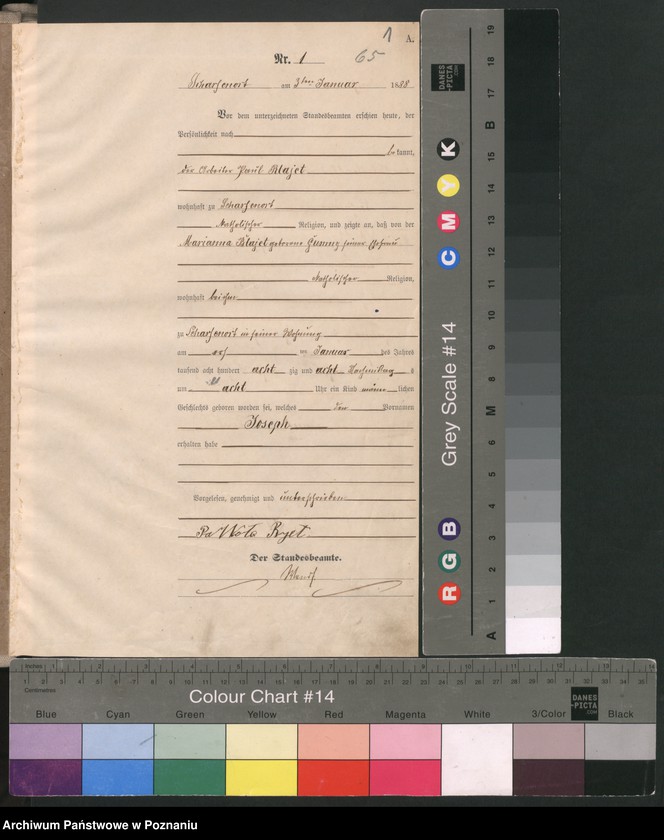 1 A.
65
Nr. 1
Scharfenort am 3ten Januar 1888
Vor dem unterzeichneten Standesbeamten erschien heute, der
Persönlichkeit nach
bekannt,
der Arbeiter Paul Blajet
wohnhaft zu Scharfenort
katholischer Religion, und zeigte an, daß von der
Marianna Blajet geborene seiner Ehefrau
katholischer Religion,
wohnhaft bei ihm
zu Scharfenort in seiner Wohnung
am ten Januar des Jahres
tausend acht hundert acht zig und acht Nachmittag s
um acht Uhr ein Kind männ lichen
Geschlechts geboren worden sei, welches den Vornamen
Joseph
erhalten habe
Vorgelesen, genehmigt und unterschrieben
Der Standesbeamte.
DANES
-PICTA
.COM
Grey Scale #14
R G B
C M Y K
A 1 2 3 4 5 6 M 8 9 10 11 12 13 14 15 B 17 18 19
Inches
Centimetres
Colour Chart #14
DANES
-PICTA
.COM
Blue Cyan Green Yellow Red Magenta White 3/Color Black
Archiwum Państwowe w Poznaniu